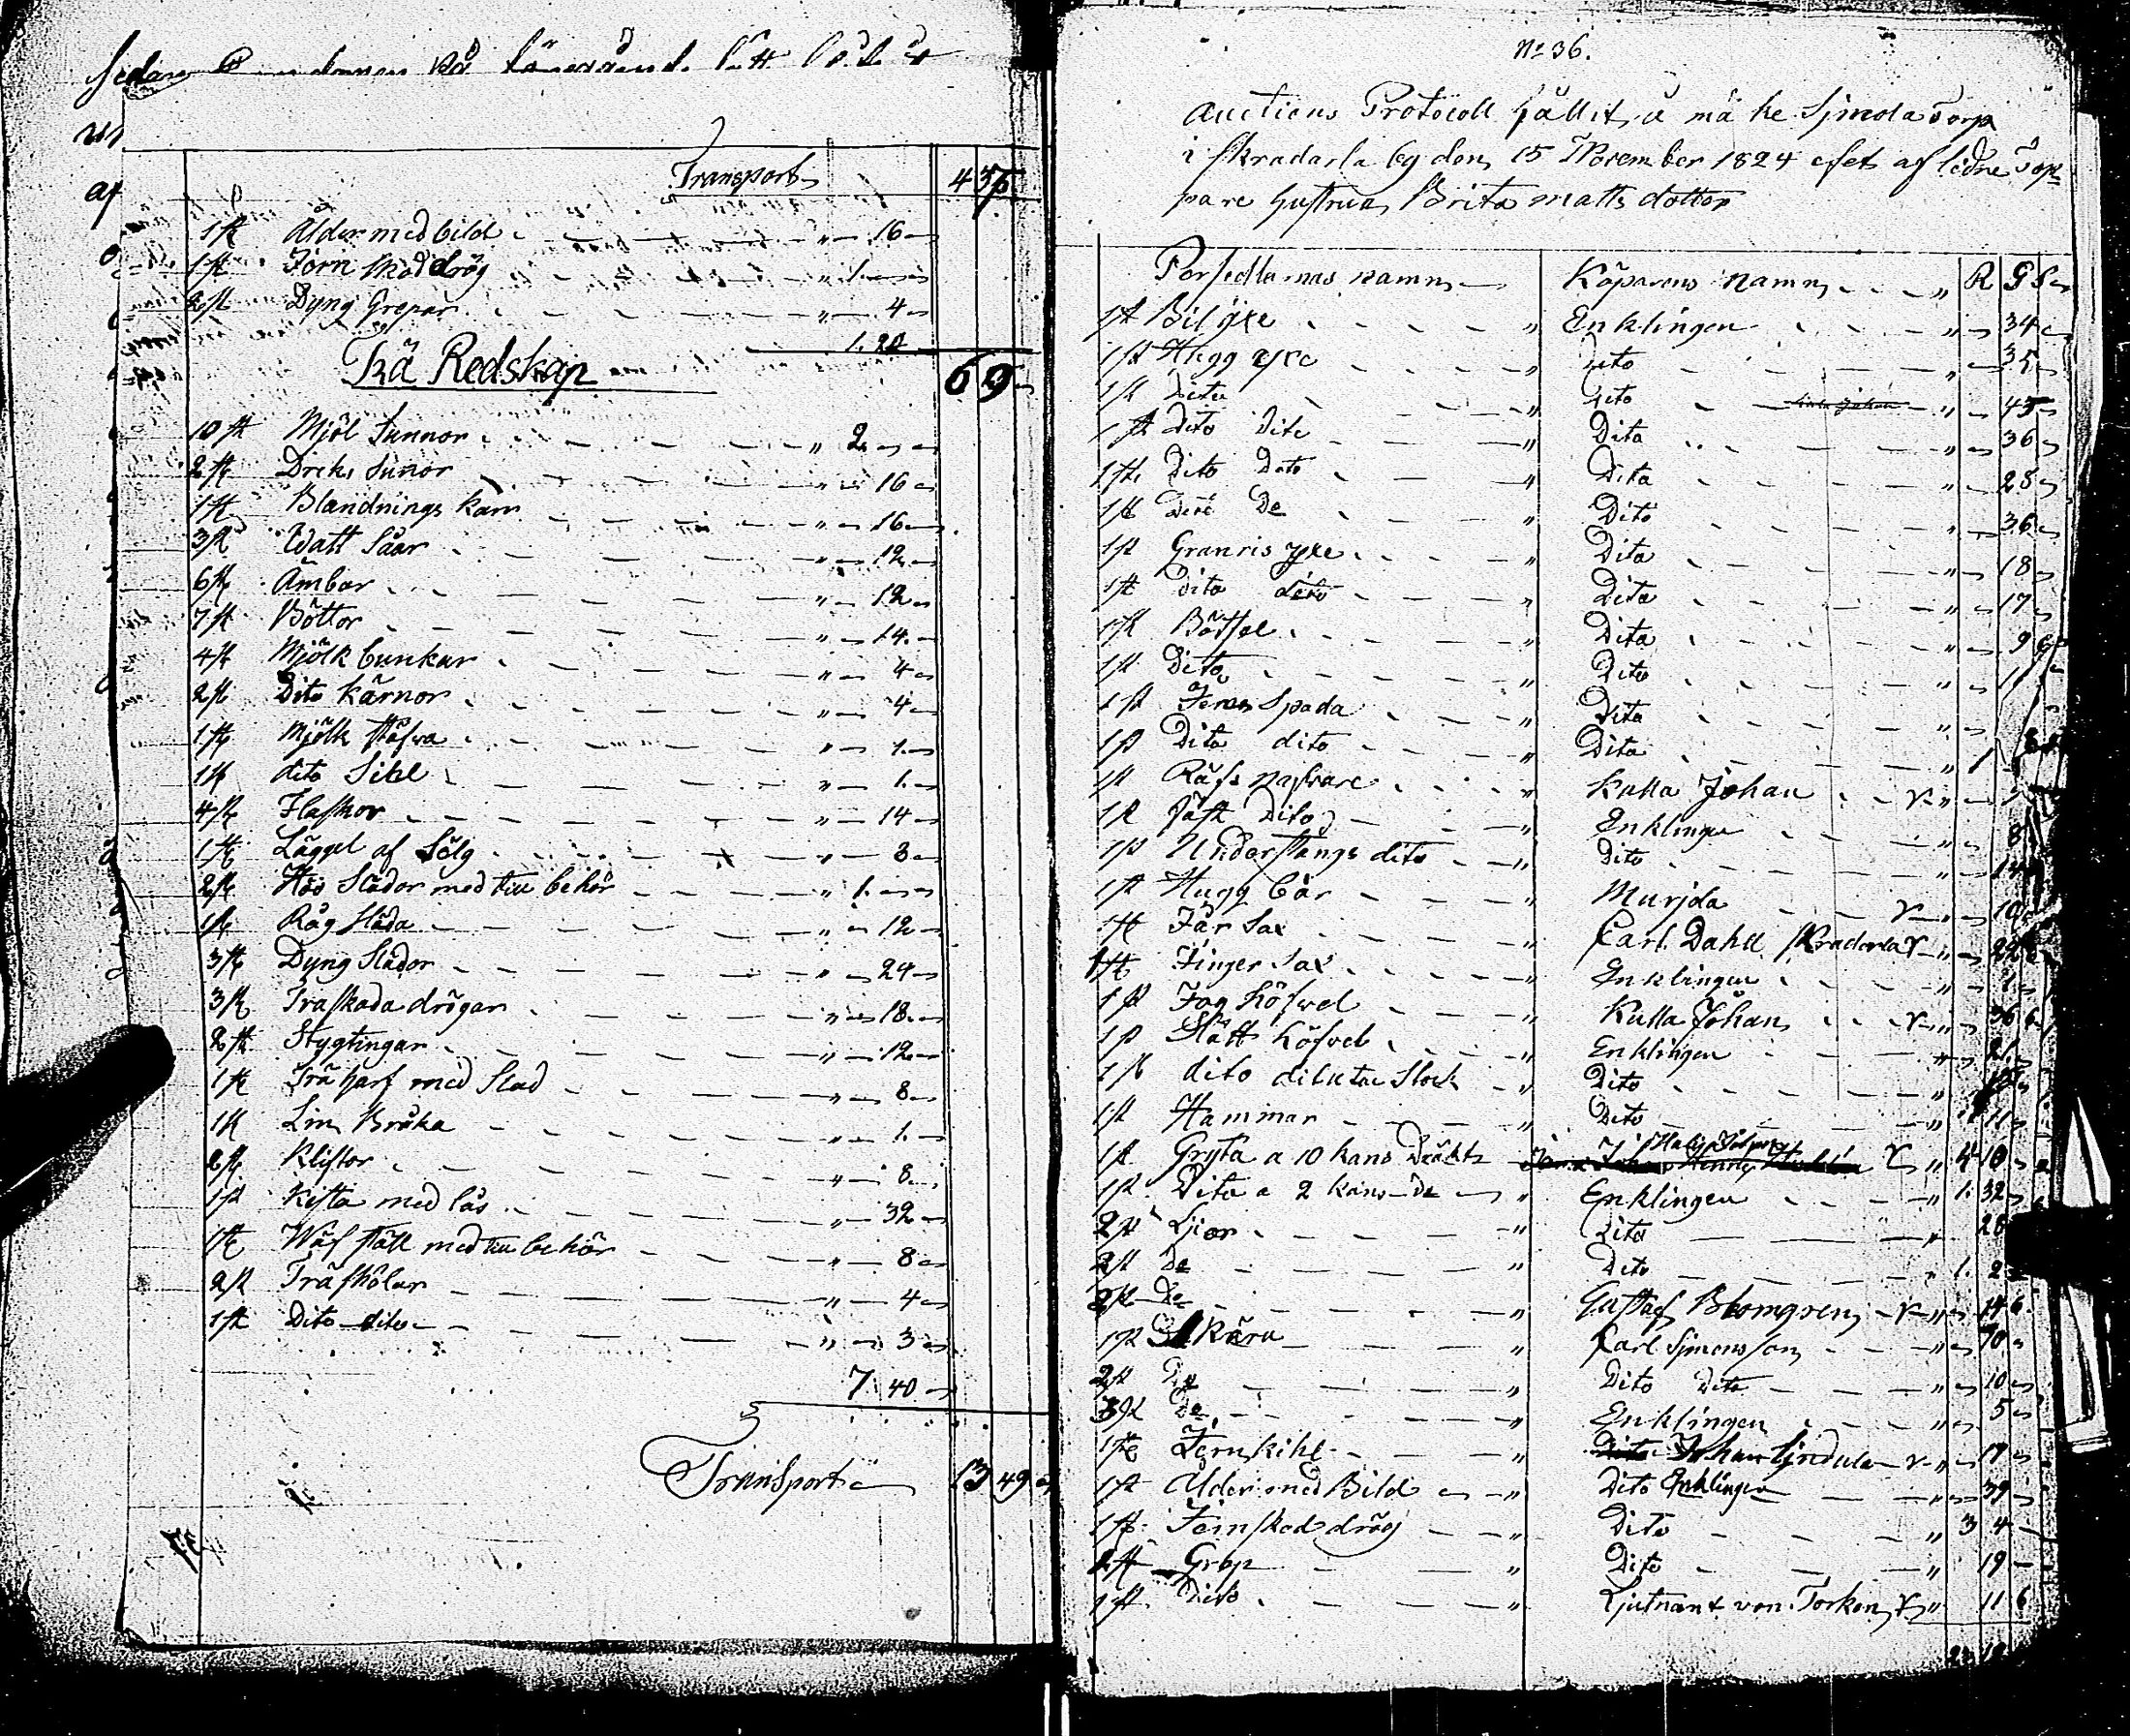 Transport 4 35
1 st Ålder med bild " 16
1 st Jern skodd drög " 1.
2 st Dyng Grepar " 4
1. 20
Trä Redskap 6 9
10 st Mjöl tunnor " 2.
2 st Dricks tunor " 16
1 st Blandnings kar " 16
3 st Watt Såar " 12
6 st Ämbar " 12
7 st Böttor " 14.
4 st Mjölk bunkar " 4
2 st Dito kärnor " 4
1 st Mjölk stäfva " 1.
1 st dito Sihl " 1.
4 st Flaskor " 14
1 st Läggel af Sölg " 8
2 st Hös Slädor med till behör " 1.
1 st Råg släda " 12
3 st Dyng Slädor " 24
3 st Träskoda drögar " 18.
2 st Stygtingar " 12
1 st Trä harf med Slad " 8
1 st Lin Bråka " 1.
2 st Klistor " 8
1 st Kista med lås " 32
1 st Wäf ställ med till behör " 8
2 st Träskölar " 4
1 st Dito dito " 3
7 40
Transport 13 49
No 36.
Auctions Protocoll hållit å
i Skradarla by den 15 November 1824 efter aflidne Torp
pare hustrun Brita Matts dotter
Persedlarnas namn Köparens Namn R G S
1 st Bil yxe " Enklingen " 34
1 st Hugg yxe " Dito " 35
1 st Dito " Dito " 45
1 st Dito Dito " Dito " 36
1 st Dito Dito " Dito " 28
1 st Dito De " Dito " 36
1 st Granris yxe " Dito " 18
1 st Dito dito " Dito " 17
1 st Bötsel " Dito " 9
1 st Dito " Dito " 11
1 st Jern Spada " Dito "
1 st Dito dito " Dito " 1
1 st Räfs nafvare " Kulla Johan "
1 st Fäst Dito " Enklingen " 8
1 st Understångs dito " Dito " 14
1 st Hugg bär " Murjda " 10
1 st Får Sax " Carl Dahll Skradarla " 22
1 st Finger Sax " Enklingen " 1
1 st Fog höfvel " Kulla Johan " 36 6
1 st Slätt höfvel " Enklingen " 21
1 st dito dito utan Stock " Dito "
1 st Hammar " Dito " 11
1 st Gryta a 10 kans Dräkt " 4 10
1 st Dito a 2 kans de " Enklingen " 1. 32
2 st Ljior " Dito " 28
2 st De " Dito " 1. 2
2 st De " Gustaf Blomgren " 14 6
1 st Skära " Carl Simonsson " 10
2 st De " Dito Dito " 10
3 st De " Enklingen " 5
1 st Jernkihl " Johan Sjndula " 17
1 st Ålder med Bild " Dito Enklingen " 39
1 st Jernskod drög " Dito " 3 4
2 st Grep " Dito " 19
1 st Dito " Ljutnant von Torken " 11 6